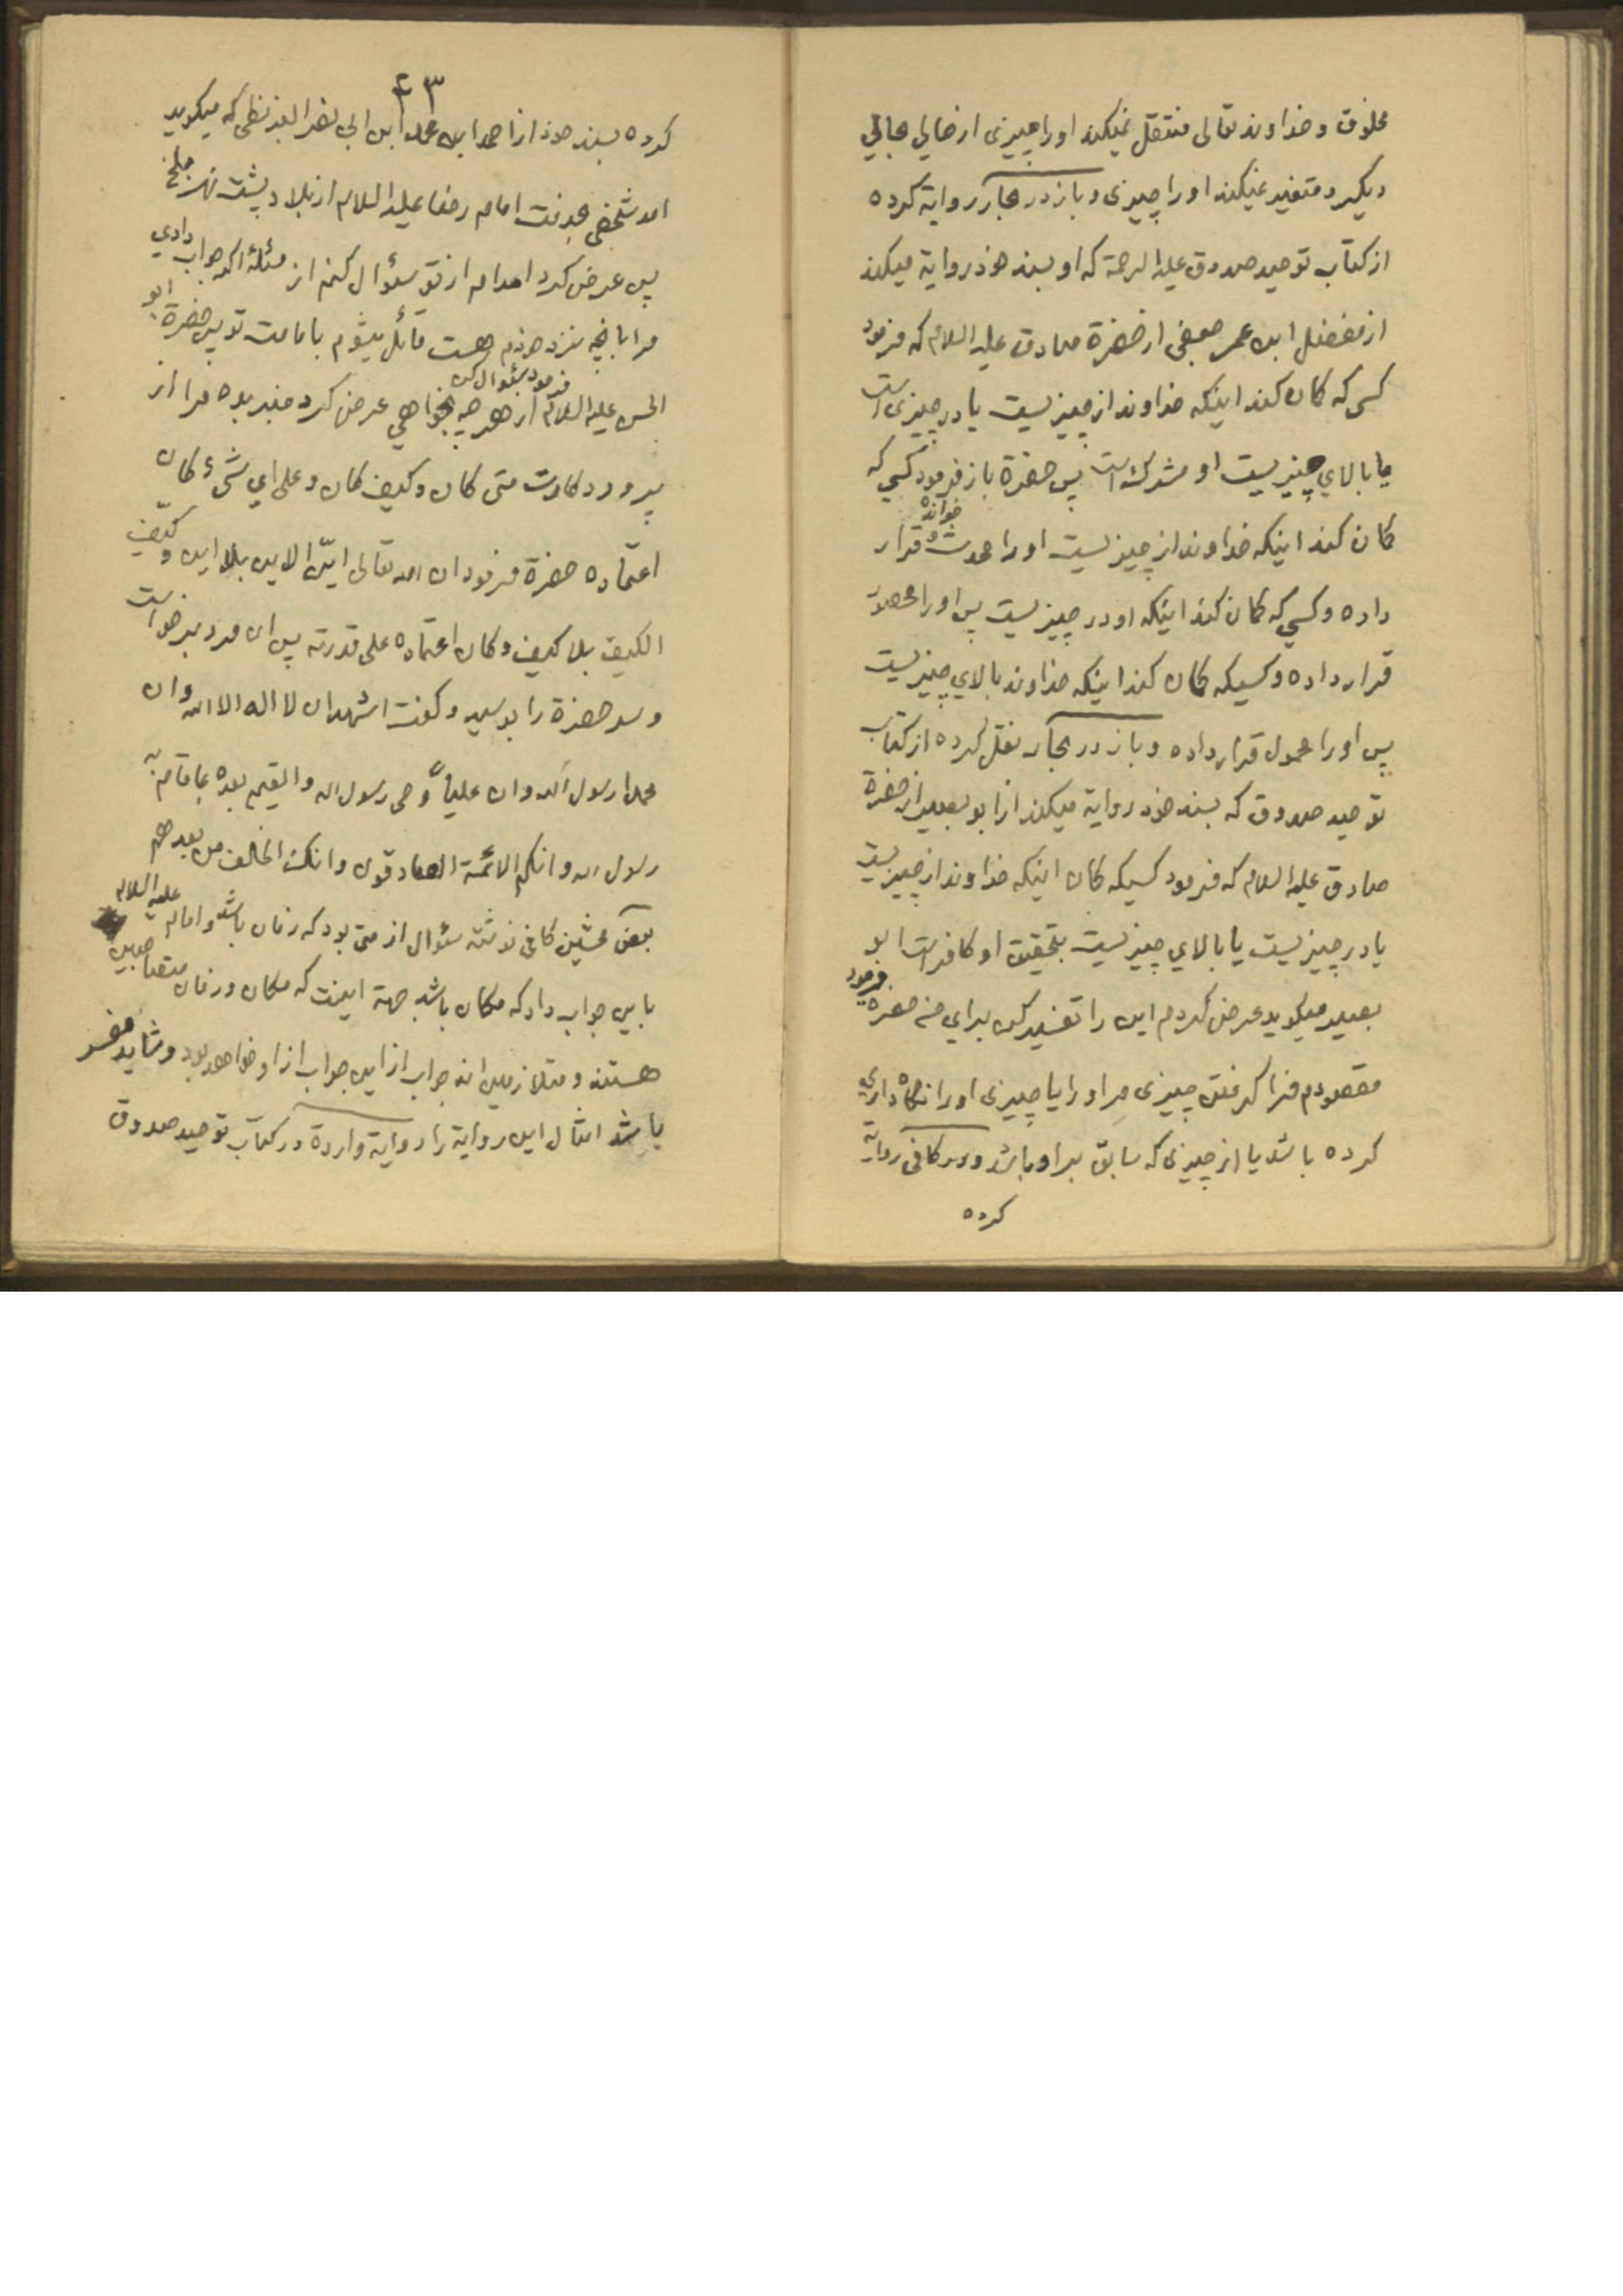 مخلوق و خداوند تعالی منتقل نمیکند او را چیزی از حالی بحالی
دیگر و متغیر نمیکند او را چیزی و باز در بحار روایة کرده
از کتاب توحید صدوق علیه الرحمة که او بسند خود روایة میکند
از مفضل ابن عمر جعفی از حضرة صادق علیه السلام که فرمود
کسی که کمان کند اینکه خداوند از چیزیست یا در چیزی است
یا بالای چیزیست او مشرک است پس حضرة باز فرمود کسی که
کمان کند اینکه خداوند از چیزیست او را محدث خوانده و قرار
داده و کسی که کمان کند اینکه او در چیزیست پس او را محصور
قرار داده و کسیکه کمان کند اینکه خداوند بالای چیزیست
پس او را محمول قرار داده و باز در بحار نقل کرده از کتاب
توحید صدوق که بسند خود روایة میکند از ابو بصیر از حضرة
صادق علیه السلام که فرمود کسیکه کمان اینکه خداوند از چیزیست
یا در چیزیست یا بالای چیزیست بتحقیق او کافر است ابو
بصیر میکوید عرض کردم این را تفسیر کن برای من حضرة فرمود
مقصودم فرا کرفتن چیزی مر او را یا چیزی او را نکاه داری
کرده باشد یا از چیزی که سابق بر او باشد و در کافی روایة
کرده
٤٣
کرده بسند خود از احمد ابن محمد ابن ابی نصر البزنطی که میکوید
امد شخصی بخدمت امام رضا علیه السلام از بلاد پشت نهر بلخ
پس عرض کرد امدام از تو سئوال کنم از مسئلۀ اکر جواب دادی
مرا بانچه نزد خودم هست قائل میشوم بامامت تو پس حضرة ابو
الحسن علیه السلام فرمود سئوال کن از هر چه بخواهی عرض کرد خبر بده مرا از
پروردکارت متی کان و کیف کان و علی ای شیء کان
اعتماده حضرة فرمود ان الله تعالی ایّن الاین بلا این و کیّف
الکیف بلا کیف و کان اعتماده علی قدرته پس ان مرد برخواست
و سر حضرة را بوسید و کفت اشهد ان لا اله الا الله و ان
محمدا رسول الله و ان علیاً وصی رسول الله و القیم بعده بما قام به
رسول الله و انکم الائمة الصادقون و انک الخلف من بعدهم
بعض محشین کافی نوشته سئوال از متی بود که زمان باشد و امام علیه السلام
باین جواب داد که مکان باشد جهة اینست که مکان و زمان متصاحبین
هستند و متلازمین اند جواب از این جواب از او خواهد بود و شاید مفسر
باشد امثال این روایة را روایة واردة در کتاب توحید صدوق